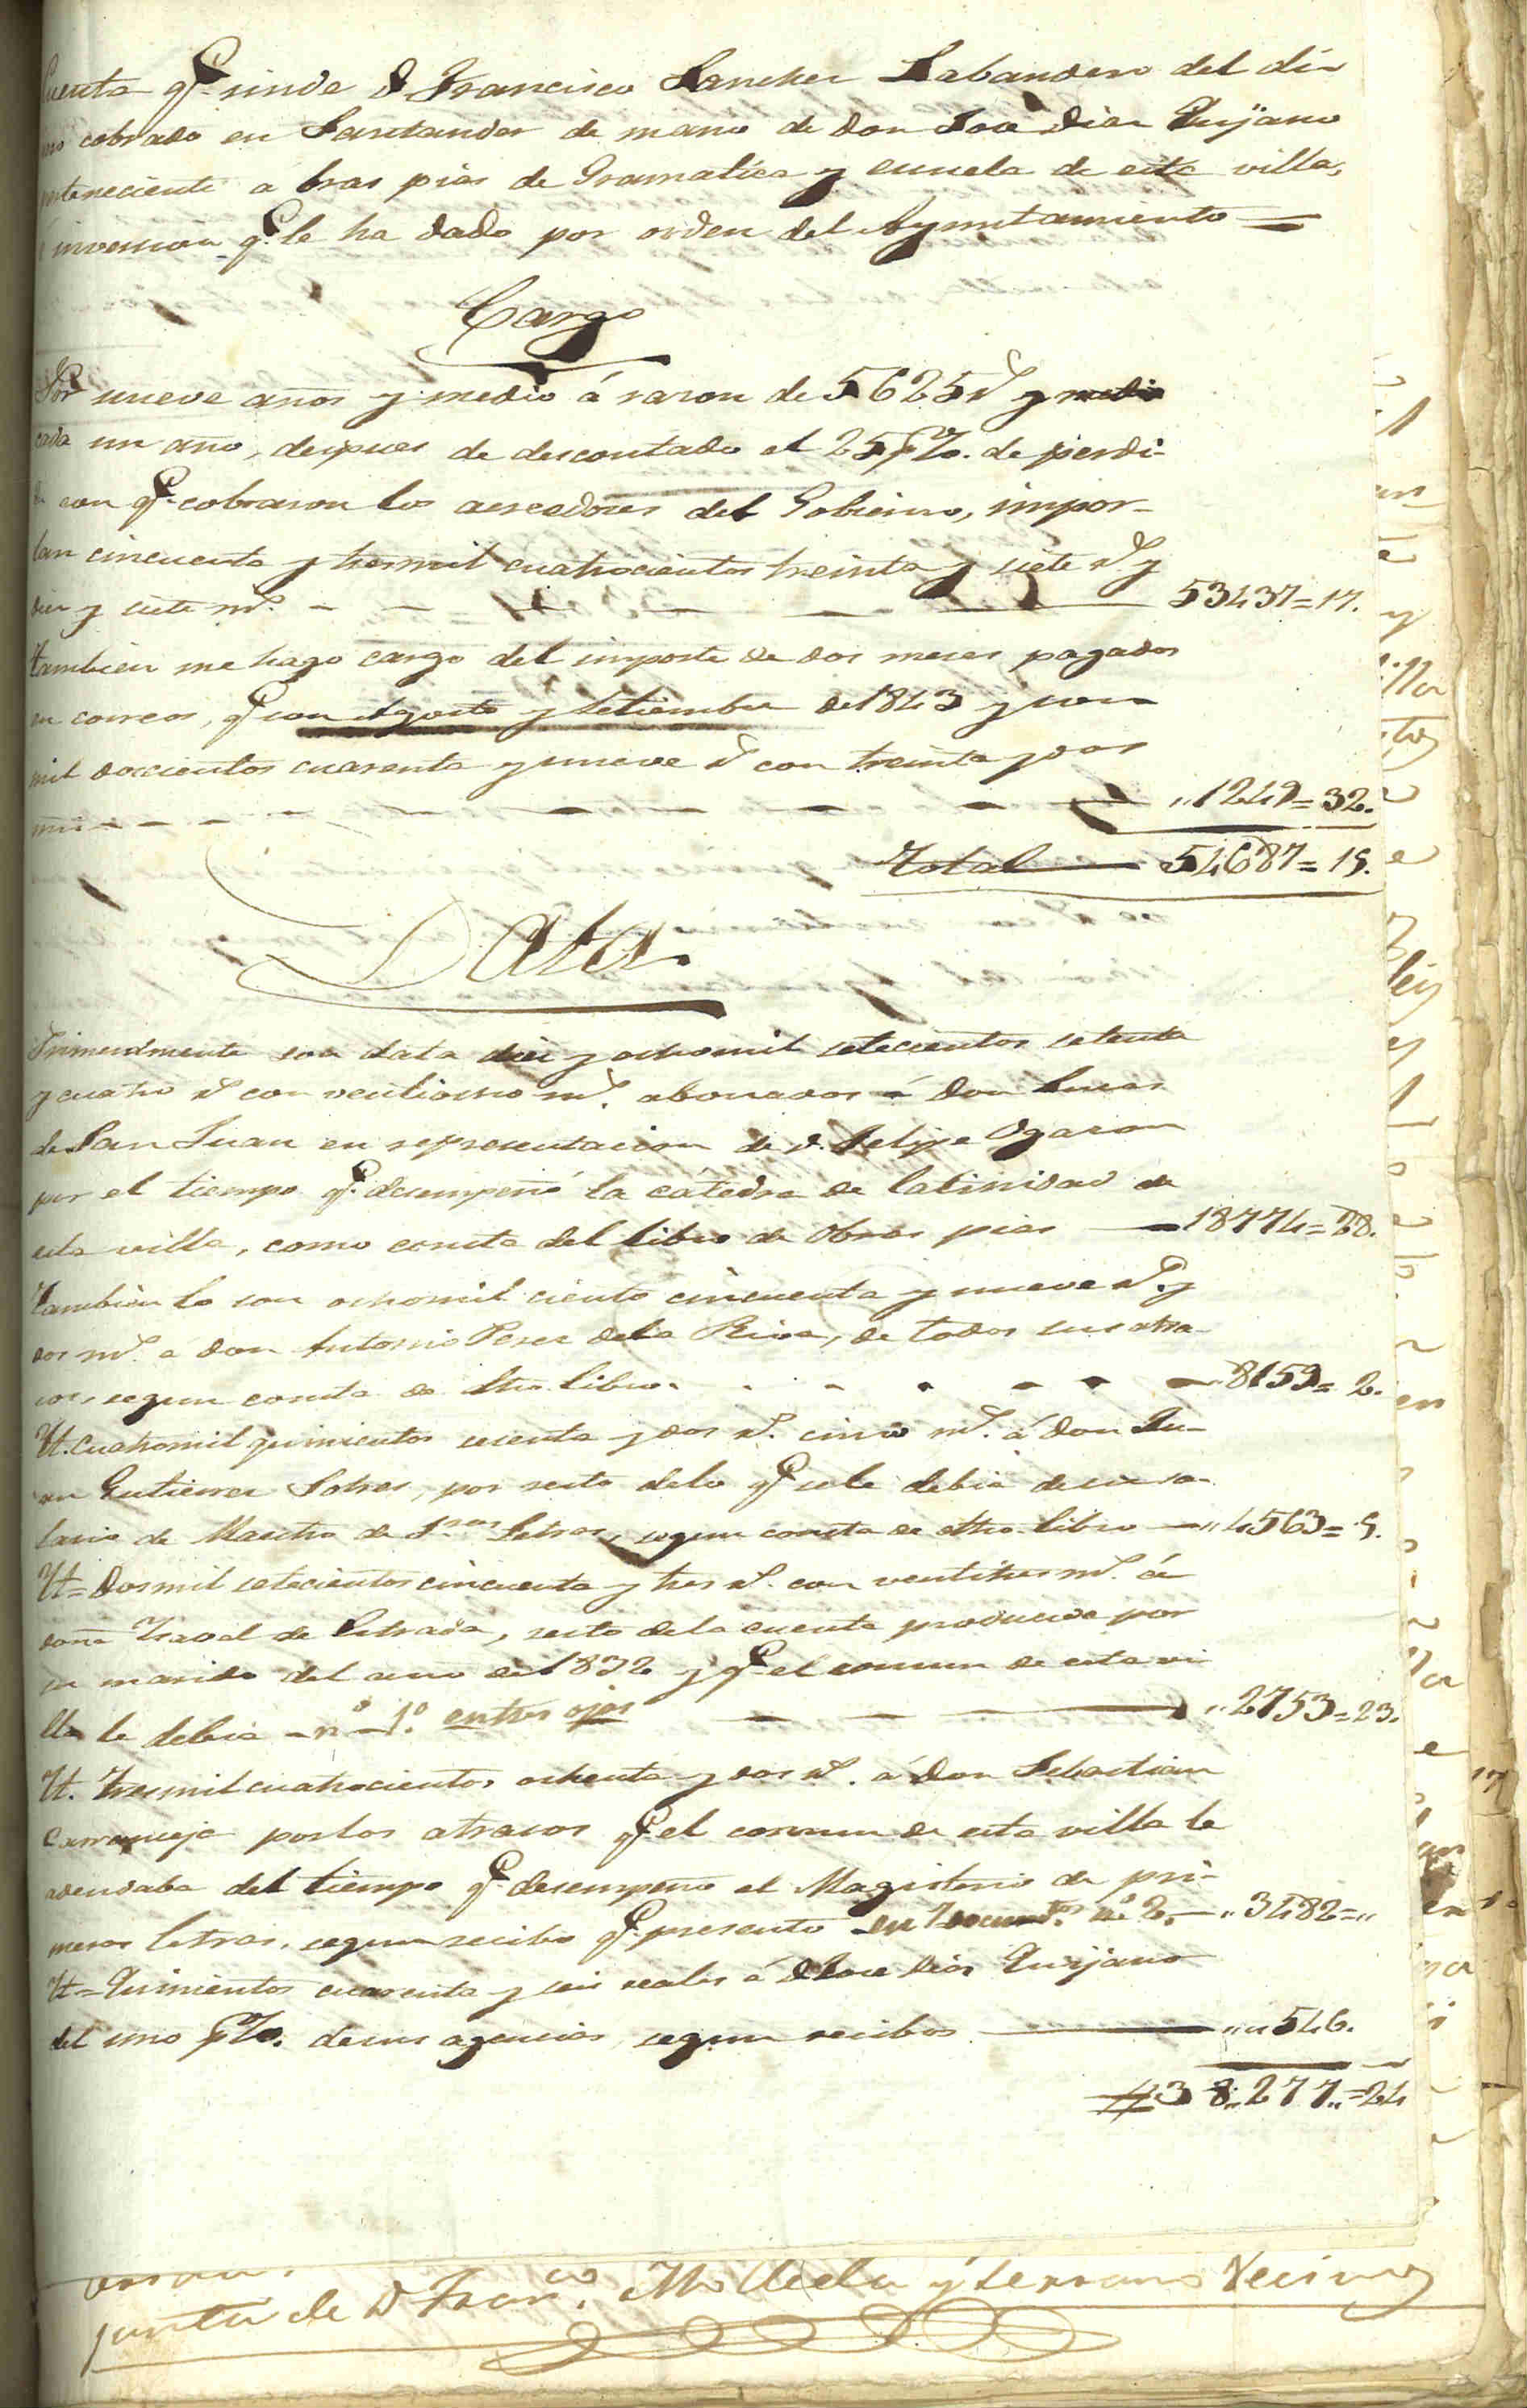 Cuenta q.e rinde D. Francisco Sanchez Labandero del din
ero cobrado en Santander de mano de don José Diaz Quijano
perteneciente a obras pias de Gramatica y escuela de esta villa,
é inversion q.e le ha dado por orden del Ayuntamiento =
Cargo
Por nueve años y medio á razon de 5625 r.s y medio
cada un año, despues de descontado el 25 p%. de perdi-
da con q.e cobraron los acreedores del Gobierno, impor-
tan cincuenta y tres mil cuatrocientos treinta y siete r.s y
diez y siete m.s - - - - - 53437=17.
Tambien me hago cargo del importe de dos meses pagados
en correos, q.e son Agosto y Setiembre de 1843 y son
mil doscientos cuarenta y nueve r.s con treinta y dos
mrs - - - - - - - ,,1249=32.
Total — 54687=15.
Data.
Primeramente son data diez y ocho mil setecientos setenta
y cuatro r.s con veintiocho m.s abonados á don Lucas
de San Juan en representacion de d. Felipe Ogazon
por el tiempo q.e desempeñó la cátedra de latinidad de
esta villa, como consta del libro de Obras pias — 18774=28.
Tambien lo son ocho mil ciento cincuenta y nueve r.s y
dos m.s a don Antonio Perez de la Riva, de todos sus atra-
sos, segun consta de dho. libro. - - - - - 8159=2.
It. cuatro mil quinientos sesenta y dos r.s cinco m.s á don Ju-
an Gutierrez Sotres, por resto de lo q.e se le debia de su sa-
lario de Maestro de 1.ras letras, segun consta de dtho. libro — ,,4563=5.
It= Dos mil setecientos cincuenta y tres r.s con veintitres m.s á
doña Isabel de Estrada, resto de la cuenta producida por
su marido del año de 1832 y q.e el comun de esta vi
lla le debia - n.º 1.º entre ojos - - - ,,2753=23.
It. Tres mil cuatrocientos ochenta y dos r.s á don Sebastian
Carranceja por los atrasos q.e el comun de esta villa le
adeudaba del tiempo q.e desempeño el Magisterio de pri-
meras letras, segun recibo q.e presento n.º 2. — ,,3482=,,
It= Quinientos cuarenta y seis reales á D. Jose Diaz Quijano
del uno p%. de sus agencias, segun recibos — ,,,,546.
#38,,277,,=24
junta de D Fran.co Molleda y terrano Vecino